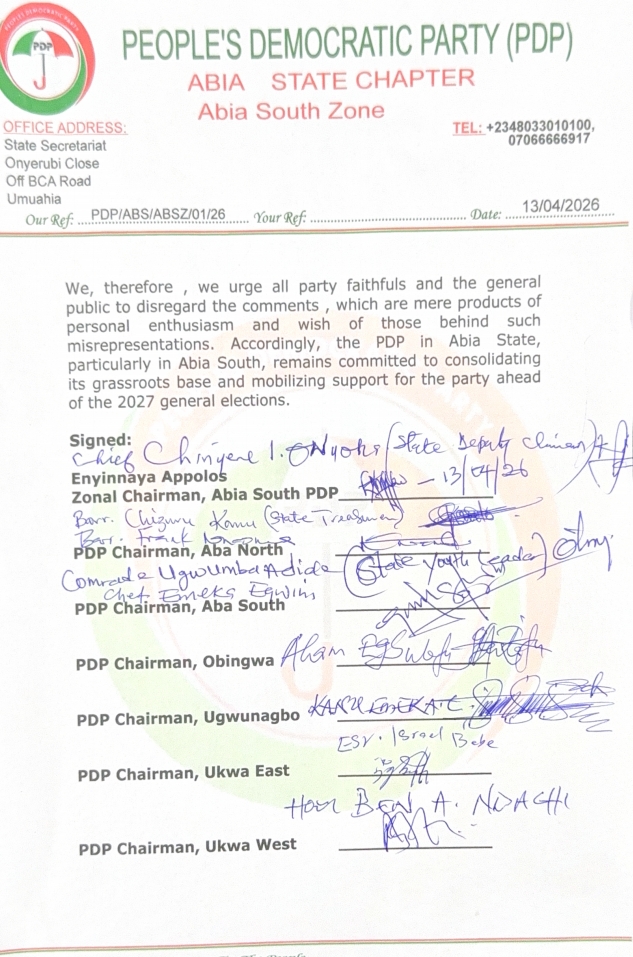 PEOPLE'S DEMOCRATIC PARTY (PDP)
ABIA STATE CHAPTER
Abia South Zone
PDP
OFFICE ADDRESS:
State Secretariat
Onyerubi Close
Off BCA Road
Umuahia
TEL: +2348033010100,
07066666917
Our Ref: PDP/ABS/ABSZ/01/26 Your Ref: Date: 13/04/2026
We, therefore , we urge all party faithfuls and the general
public to disregard the comments , which are mere products of
personal enthusiasm and wish of those behind such
misrepresentations. Accordingly, the PDP in Abia State,
particularly in Abia South, remains committed to consolidating
its grassroots base and mobilizing support for the party ahead
of the 2027 general elections.
Signed:
Chief Chinyere I. (State Deputy
Enyinnaya Appolos
Zonal Chairman, Abia South PDP - 13/04/26
Barr. Kanu (State Treasurer)
Barr. Frank
PDP Chairman, Aba North
Comrade Ugwumba Adide (State Youth Leader)
Chief Emeka
PDP Chairman, Aba South
PDP Chairman, Obingwa
PDP Chairman, Ugwunagbo KANU EMEKA E.
ESV. Israel
PDP Chairman, Ukwa East
Hon BEN A. NDACHI
PDP Chairman, Ukwa West